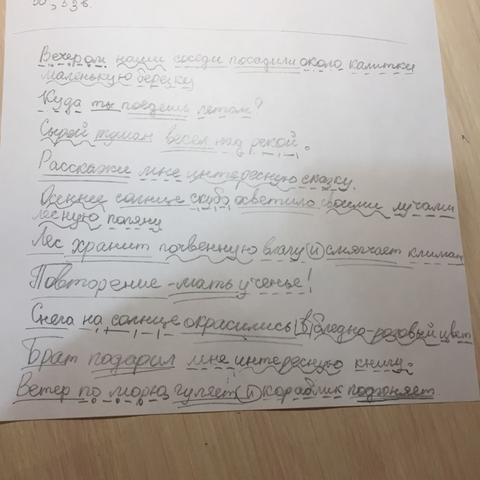 Вечером наши соседи посадили около калитки
маленькую берёзку
Куда ты поедешь летом?
Сырой туман висел над рекой.
Расскажи мне интересную сказку.
Осеннее солнце скупо осветило своими лучами
лесную поляну
Лес хранит почвенную влагу (и) смягчает климат
Повторение - мать ученье!
Снега на солнце окрасились (в) бледно-розовый цвет
Брат подарил мне интересную книгу.
Ветер по морю гуляет (и) кораблик подгоняет